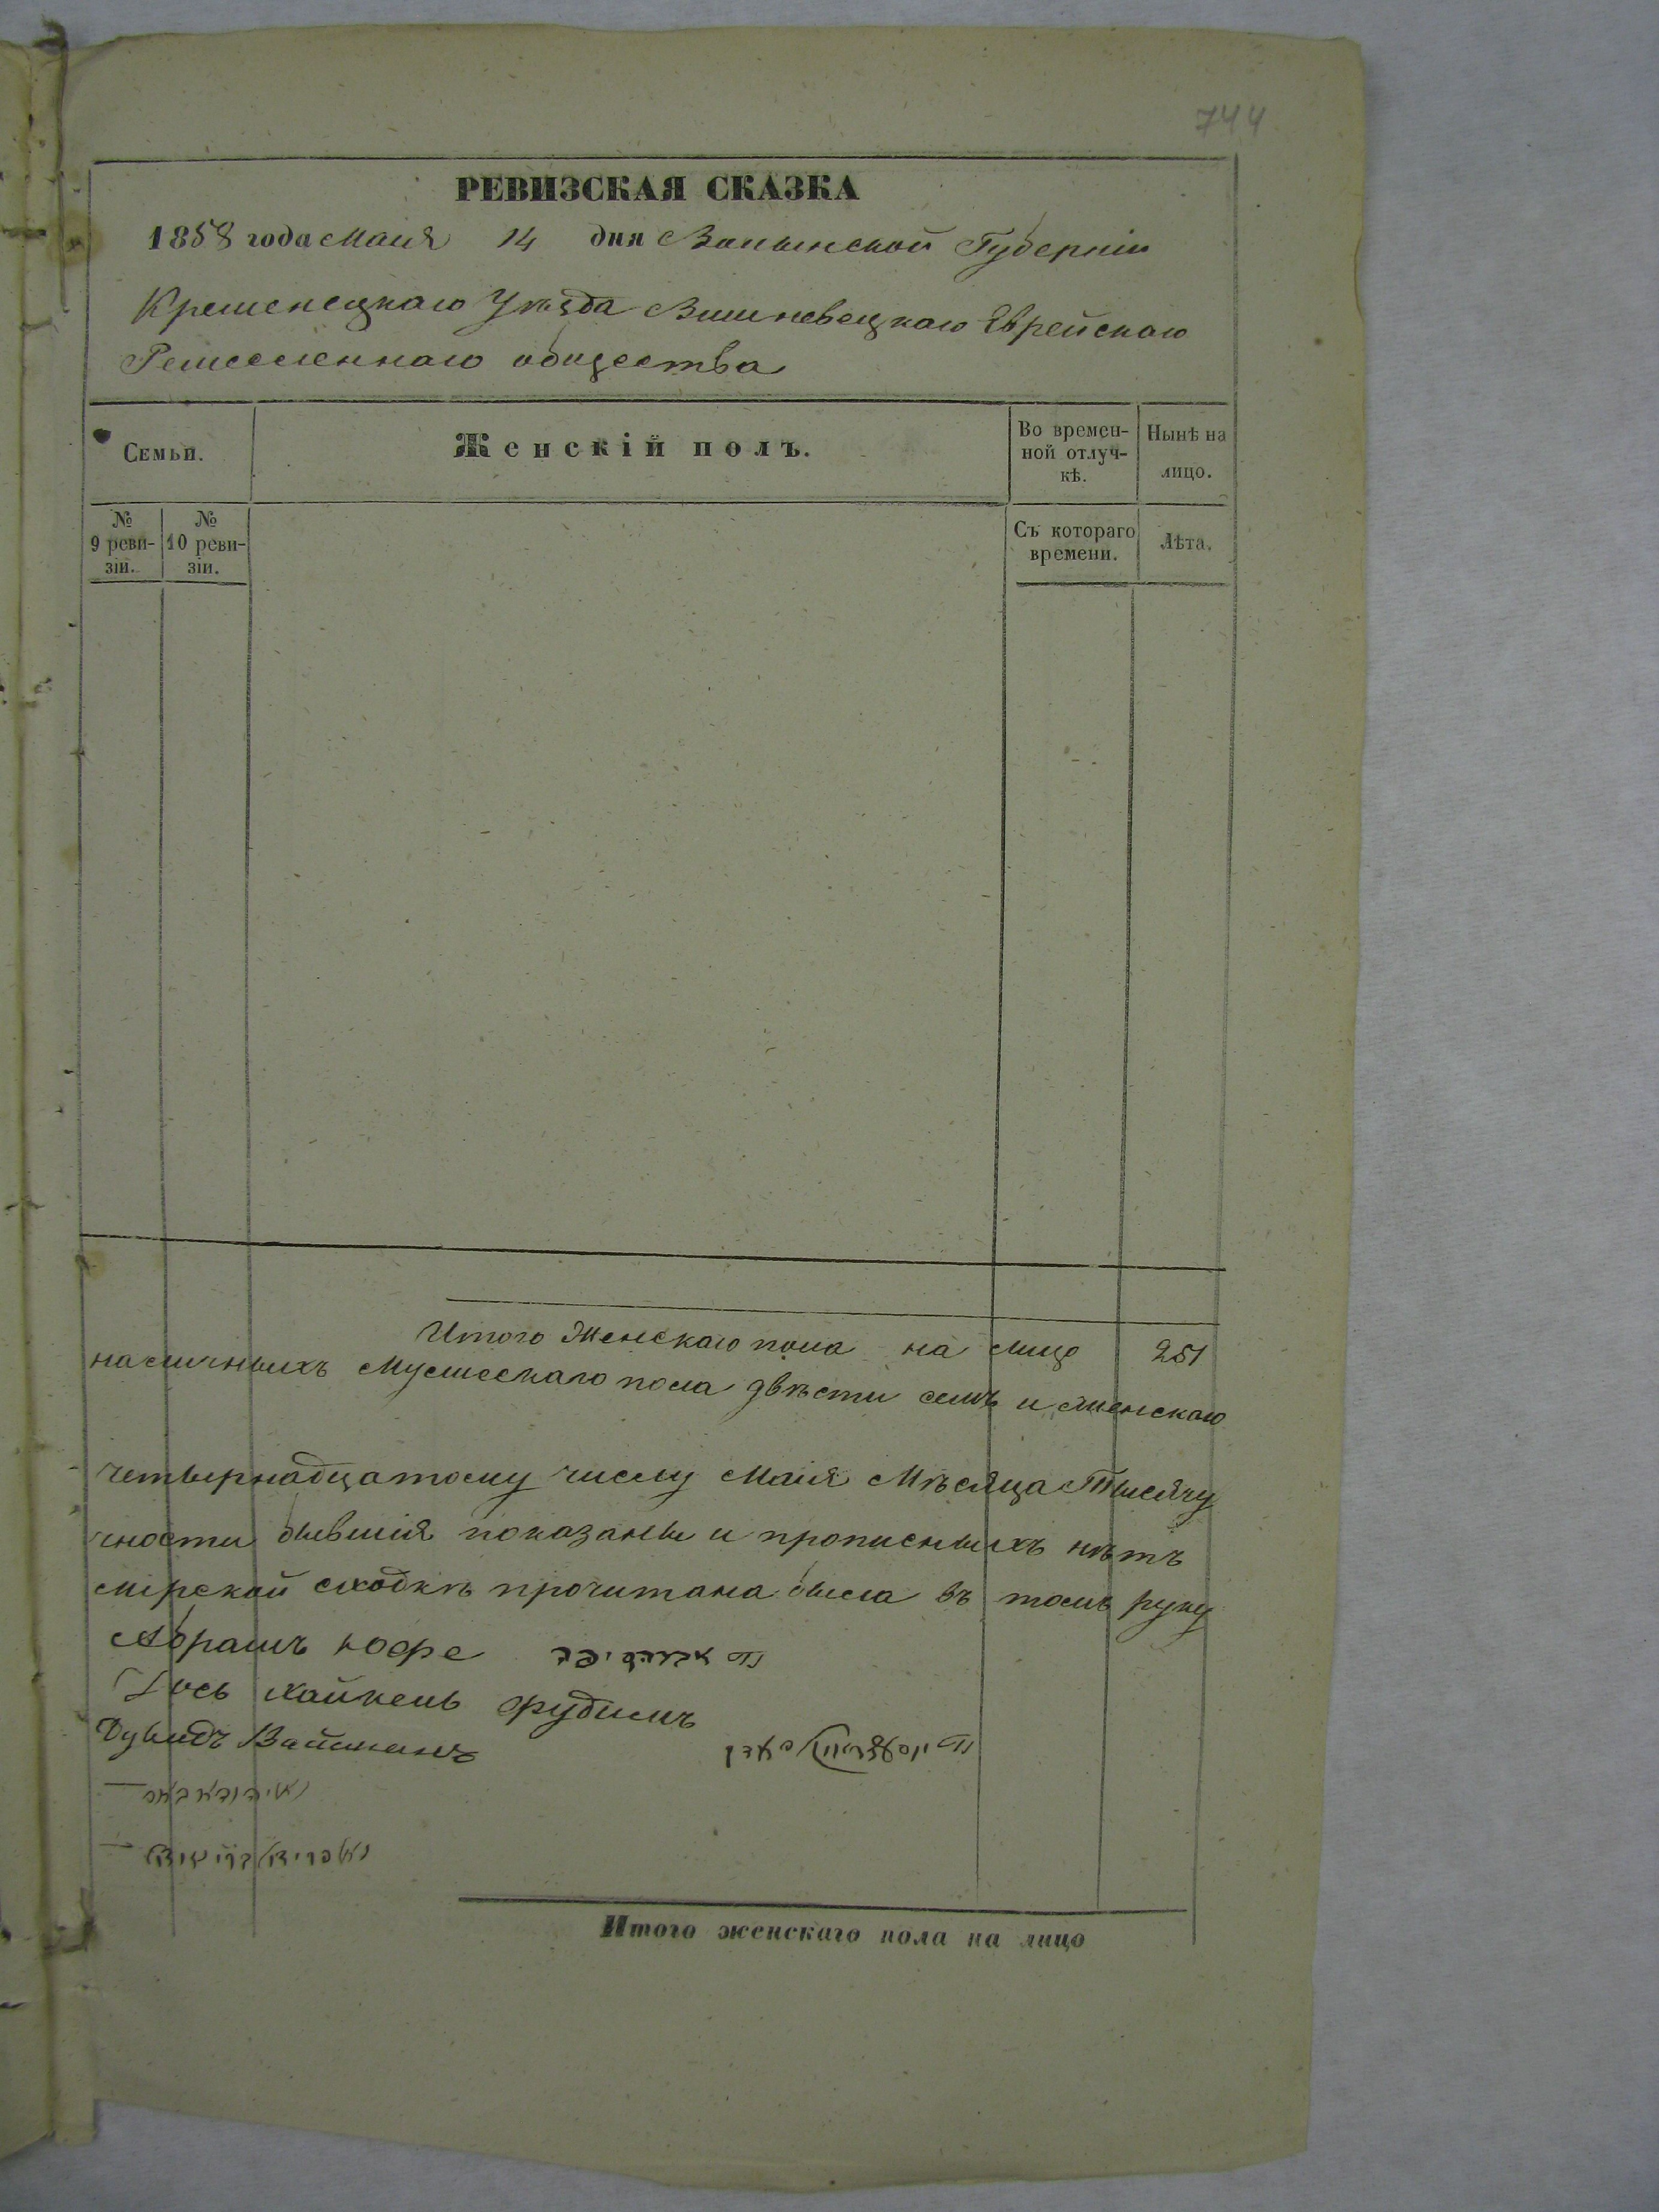 744
РЕВИЗСКАЯ СКАЗКА
1858 года Маія 14 дня Волынской Губерніи
Кременецкаго Уѣзда Вишневецкаго Еврейскаго
Ремесленнаго общества
Семьи.
Женскій полъ.
Во времен-
ной отлуч-
кѣ.
Нынѣ на
лицо.
№
9 реви-
зіи.
№
10 реви-
зіи.
Съ котораго
времени.
Лѣта.
Итого Женскаго пола на лицо 251
наличныхъ Мужескаго пола двѣсти семь и женскаго
четырнадцатому числу Маія Мѣсяца Тысячу
чности бывшія показаны и прописныхъ нѣтъ
мірской сходкѣ прочитана была въ томъ руку
Абрамъ Юфе
Іось Хайкель Фудимъ
Дувидъ Вайсманъ
Итого женскаго пола на лицо